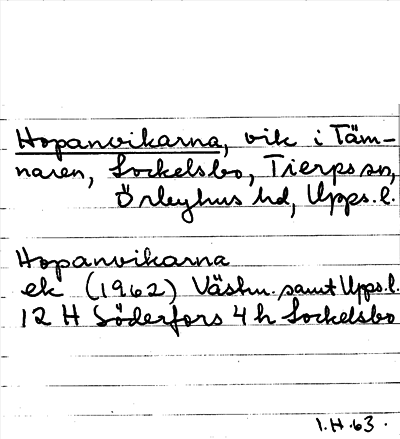 Hopanvikarna, vik i Täm-
naren, Sockelsbo, Tierps sn,
Örbyhus hd, Upps. l.
Hopanvikarna
ek (1962) Västm. samt Upps. l.
12 H Söderfors 4 h Sockelsbo
I.H.63.